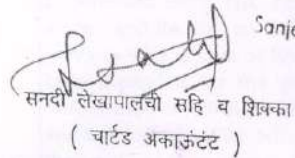 Sanj
सनदी लेखापालची सहि व शिक्का
( चार्टड अकाऊंटंट )